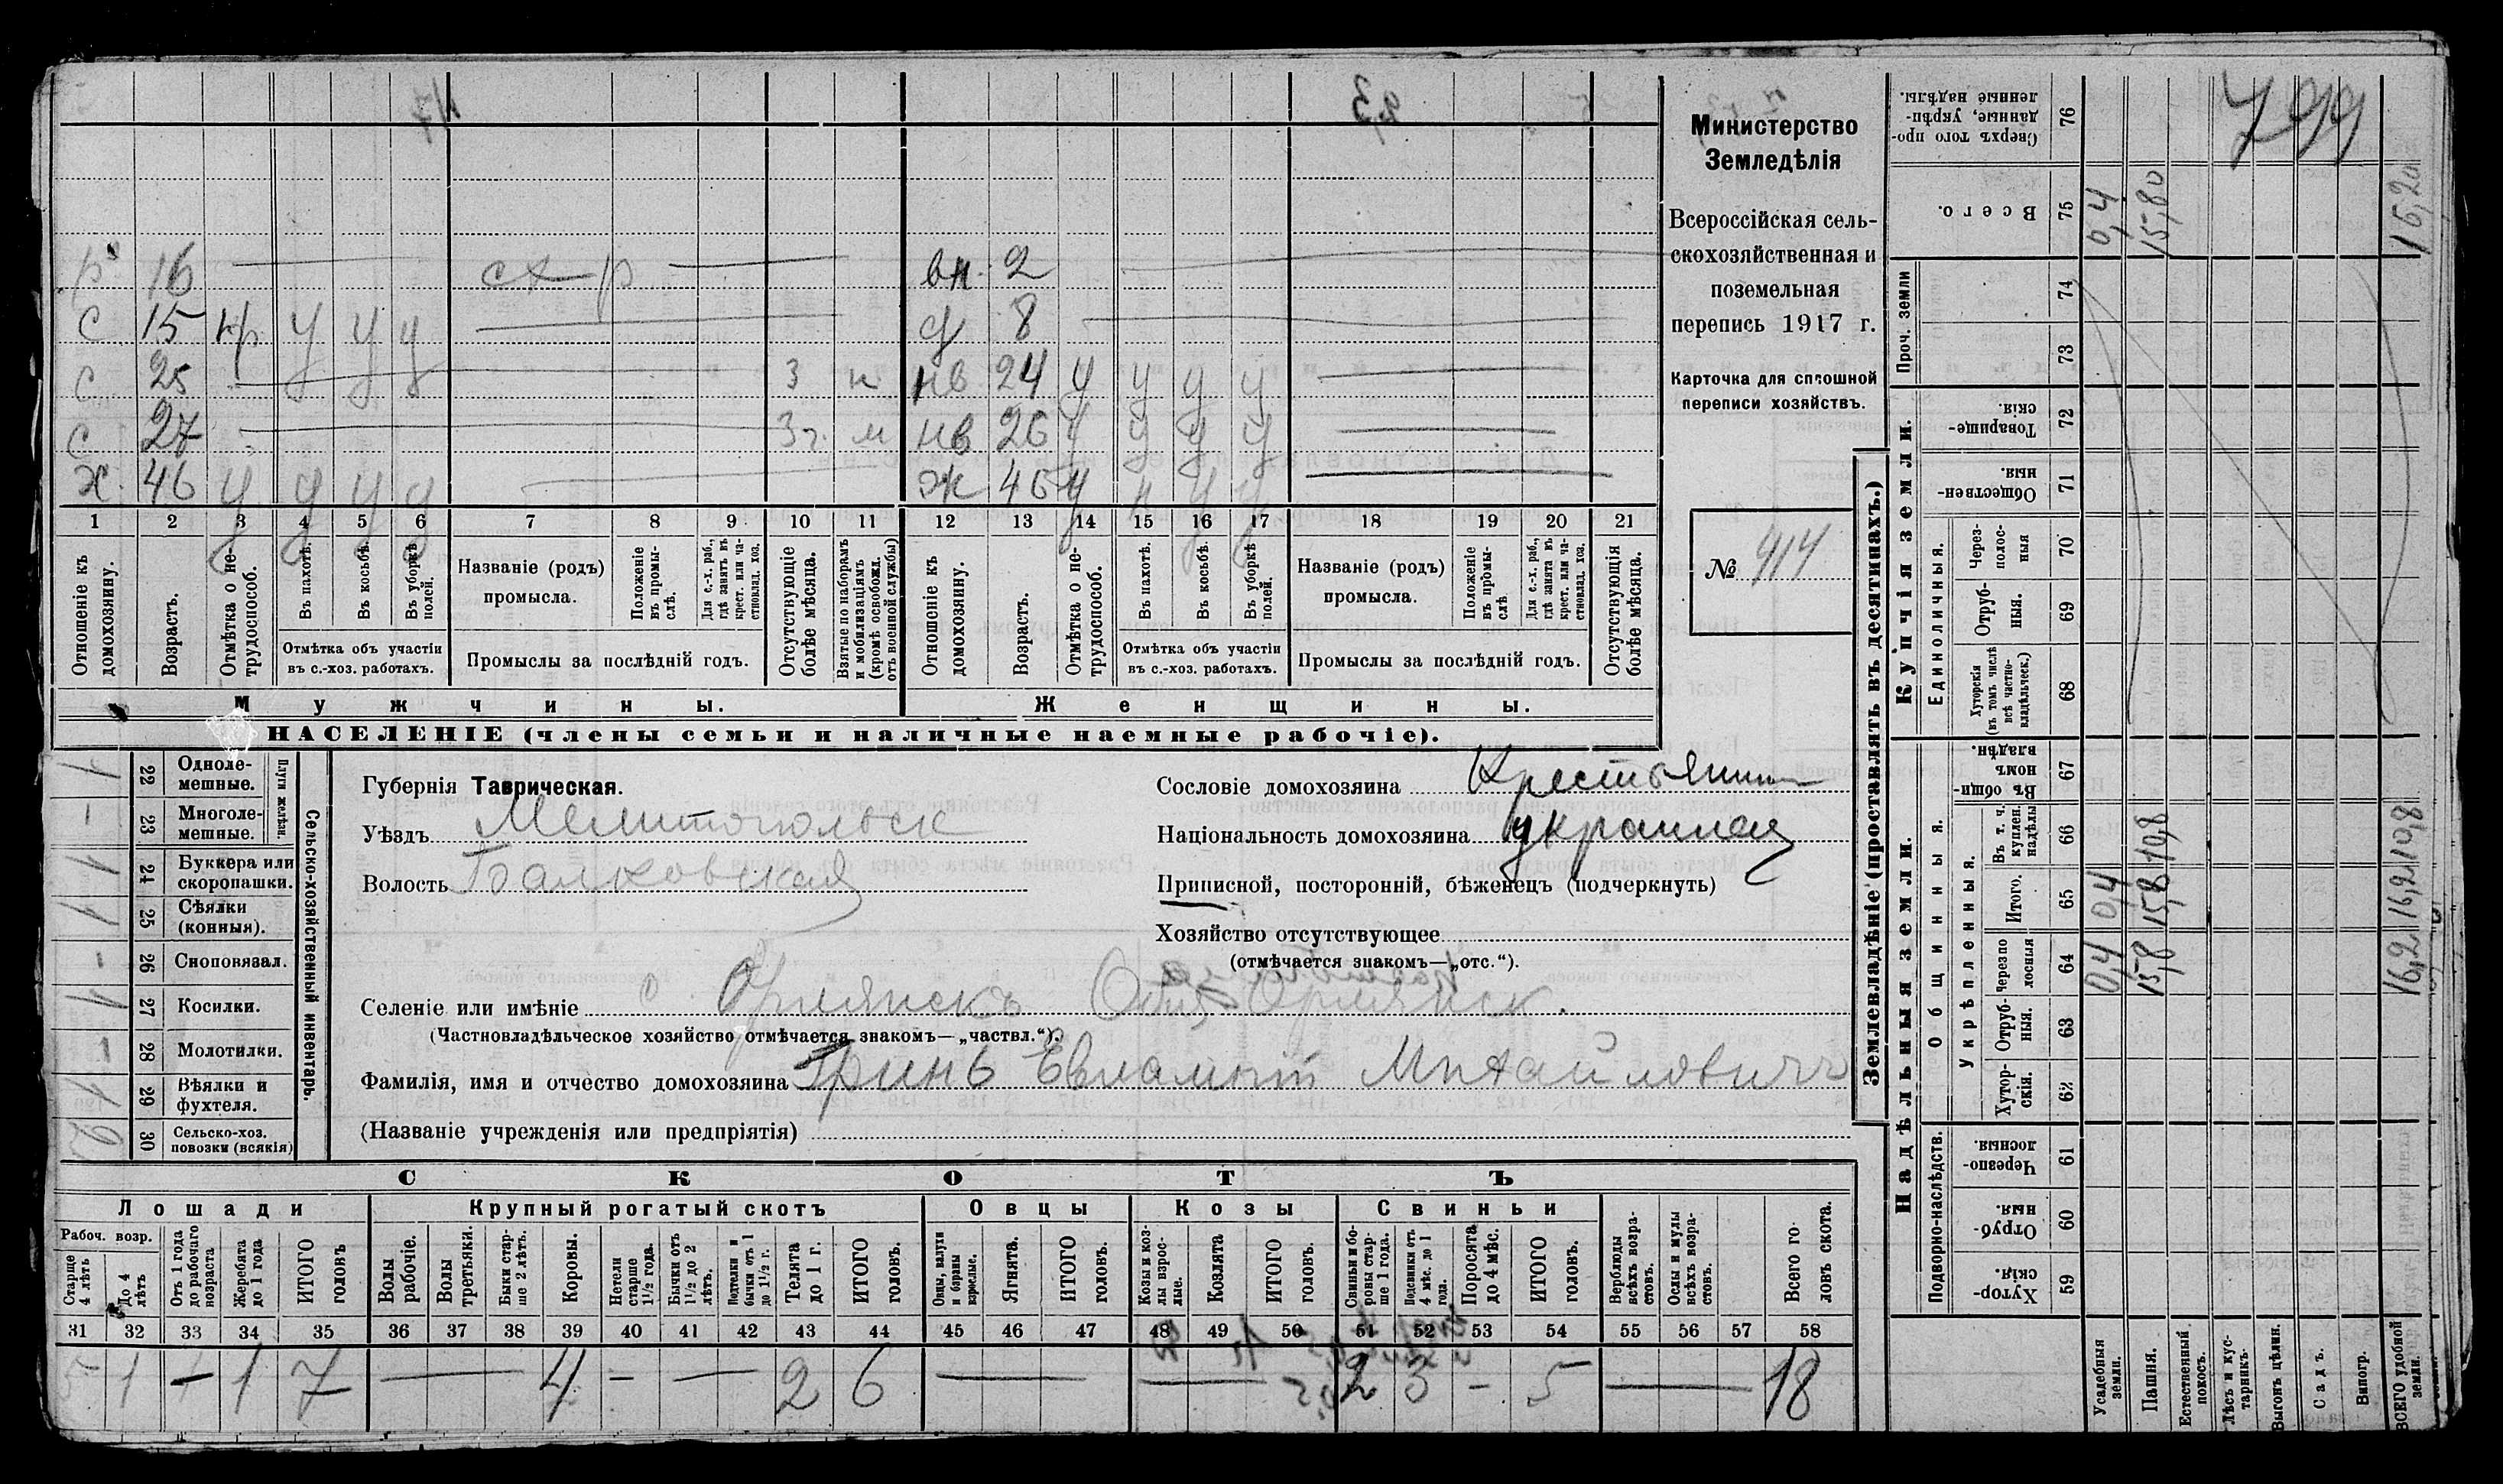 р 16 с х р вн. 2
с 15 нр у у у д 8
с 25 3 н нв 24 у у у у
с 27 3 г. м нв 26 у у у у
х. 46 у у у у ж 45 у н у у
1 2 3 4 5 6 7 8 9 10 11 12 13 14 15 16 17 18 19 20 21
Отношеніе къ домохозяину.
Возрастъ.
Отмѣтка о не-трудоспособ.
Въ пахотѣ.
Въ косьбѣ.
Въ уборкѣ полей.
Отмѣтка объ участіи
въ с.-хоз. работахъ.
Названіе (родъ)
промысла.
Положеніе въ промы-слѣ.
Для с.-х. раб., гдѣ занятъ въ крест. или ча-стновлад. хоз.
Промыслы за послѣдній годъ.
Отсутствующіе болѣе мѣсяца.
Взятые по наборамъ и мобилизаціямъ (кромѣ освобожд. отъ военной службы)
Отношеніе къ домохозяину.
Возрастъ.
Отмѣтка о не-трудоспособ.
Въ пахотѣ.
Въ косьбѣ.
Въ уборкѣ полей.
Отмѣтка объ участіи
въ с.-хоз. работахъ.
Названіе (родъ)
промысла.
Положеніе въ промы-слѣ
Для с.-х. раб., гдѣ занята въ крест. или ча-стновлад. хоз.
Промыслы за послѣдній годъ.
Отсутствующія болѣе мѣсяца.
Мужчины. Женщины.
НАСЕЛЕНІЕ (члены семьи и наличные наемные рабочіе).
Министерство
Земледѣлія
Всероссійская сель-
скохозяйственная и
поземельная
перепись 1917 г.
Карточка для сплошной
переписи хозяйствъ.
№ 914
Сельско-хозяйственный инвентарь.
Плуги желѣзн.
1 22 Одноле-мешные.
- 23 Многоле-мешные.
1 24 Буккера или скоропашки.
1 25 Сѣялки (конныя).
- 26 Сноповязал.
1 27 Косилки.
1 28 Молотилки.
1 29 Вѣялки и фухтеля.
30 Сельско-хоз. повозки (всякія)
Губернія Таврическая.
Уѣздъ Мелитопольск
Волость Балковская
Сословіе домохозяина Крестьянин
Національность домохозяина украинец
Приписной, посторонній, бѣженецъ (подчеркнуть)
Хозяйство отсутствующее
(отмѣчается знакомъ—„отс.“).
Селеніе или имѣніе о Орлянскъ Общ Орлянск.
(Частновладѣльческое хозяйство отмѣчается знакомъ—„частвл.“).
Фамилія, имя и отчество домохозяина Гринь Евлампій Михайлович
(Названіе учрежденія или предпріятія)
СКОТЪ
Лошади Крупный рогатый скотъ Овцы Козы Свиньи
Рабоч. возр.
Старше 4 лѣтъ
До 4 лѣтъ
Отъ 1 года до рабочаго возраста
Жеребята до 1 года
ИТОГО головъ
Волы рабочіе.
Волы третьяки.
Быки стар-ше 2 лѣтъ.
Коровы.
Нетели старше 1½ года.
Бычки отъ 1½ до 2 лѣтъ.
Подтелки и бычки отъ 1 до 1½ г.
Телята до 1 г.
ИТОГО головъ.
Овцы, валухи и бараны взрослые.
Ягнята.
ИТОГО головъ.
Козы и коз-лы взрос-лые.
Козлята
ИТОГО головъ.
Свиньи и бо-ровы стар-ше 1 года.
Подсвинки отъ 4 мѣс. до 1 года.
Поросята до 4 мѣс.
ИТОГО головъ.
Верблюды всѣхъ возра-стовъ.
Ослы и мулы всѣхъ возра-стовъ.
Всего го-ловъ скота.
31 32 33 34 35 36 37 38 39 40 41 42 43 44 45 46 47 48 49 50 51 52 53 54 55 56 57 58
5 1 — 1 7 — 4 - — 2 6 — — 2 3 - 5 — 18
Землевладѣніе (проставлять въ десятинахъ.)
Купчія земли.
Надѣльныя земли.
Сверхъ того про-данные, укрѣп-ленные надѣлы. 76
799
Всего. 75 0,4 15,80 16,20
Проч. земли 74 73
Товарище-скія. 72
Обществен-ныя. 71
Единоличныя.
Через-полос-ныя 70
Отруб-ныя. 69
Хуторскія (въ томъ числѣ всѣ частно-владѣльческ.) 68
Общинныя.
Въ общи-номъ владѣн. 67
Укрѣпленныя.
Въ т. ч. куплен. надѣлы 66 10,8 10,8
Итого. 65 0,4 15,8 16,2
Черезпо-лосныя 64 0,4 15,8 16,2
Отруб-ныя. 63
Хутор-скія. 62
Подворно-наслѣдств.
Черезпо-лосныя. 61
Отруб-ныя. 60
Хутор-скія. 59
Усадебныя земли.
Пашня.
Естественный покосъ.
Лѣсъ и кус-тарникъ.
Выгонъ цѣлин.
Садъ.
Виногр.
ВСЕГО удобной земли.